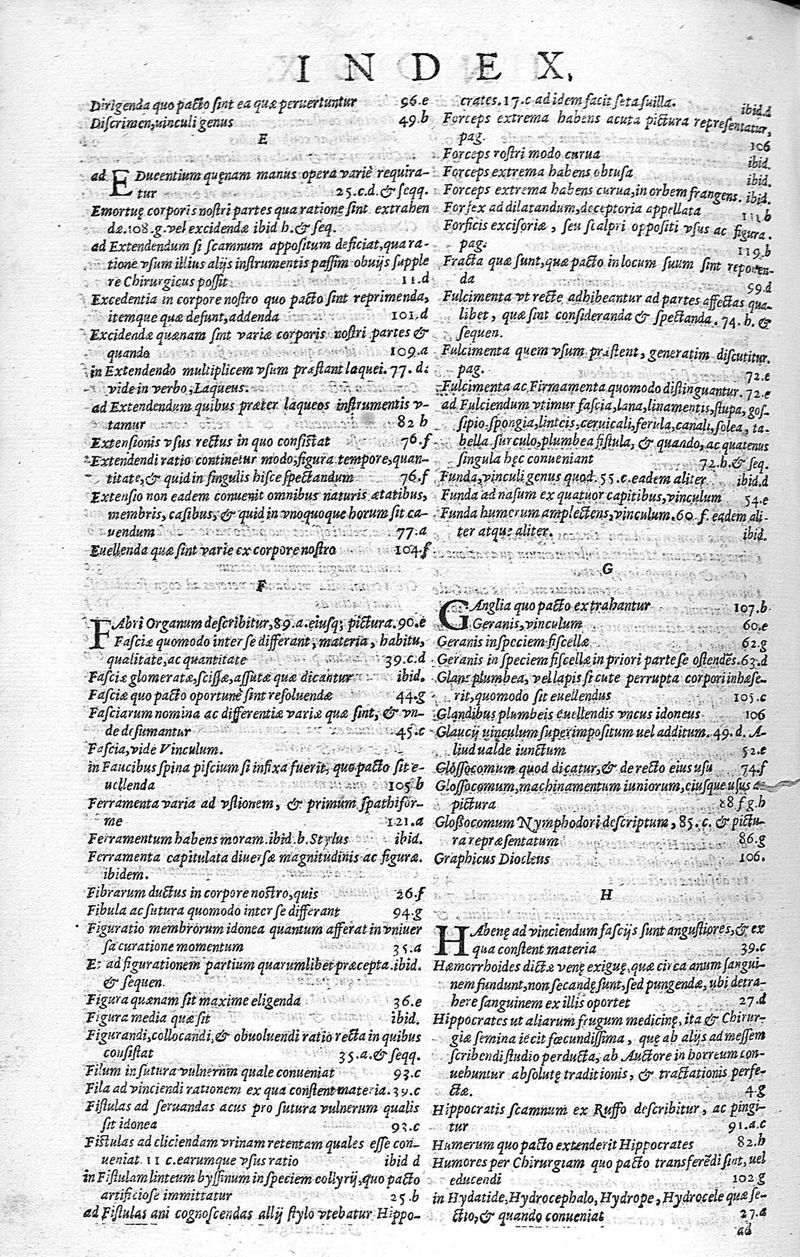 INDEX.
Dirigenda quo pacto sint ea quæ peruertuntur 96.e
Discrimen, uinculi genus 49.b
E
ad EDucentium quęnam manus opera variè requira-
tur 25.c.d. & seqq.
Emortuę corporis nostri partes qua ratione sint extrahen
dæ. 108.g. vel excidendæ ibid h. & seq.
ad Extendendum si scamnum appositum deficiat, qua ra-
tione vsum illius alijs instrumentis passim obuijs supple
re Chirurgicus possit 11.d
Excedentia in corpore nostro quo pacto sint reprimenda,
itemque quæ desunt, addenda 101.d
Excidendæ quænam sint variæ corporis nostri partes &
quando 109.a
in Extendendo multiplicem vsum præstant laquei. 77.d:
vide in verbo, Laqueus.
ad Extendendum quibus præter laqueos instrumentis v-
tamur 82 b
Extensionis vsus rectus in quo consistat 76.f
Extendendi ratio continetur modo, figura tempore, quan-
titate, & quid in singulis hisce spectandum 76.f
Extensio non eadem conuenit omnibus naturis ætatibus,
membris, casibus, & quid in vnoquoque horum sit ca-
uendum 77.a
Euellenda quæ sint varie ex corpore nostro 104.f
F
FAbri Organum describitur, 89.a. eiusq; pictura. 90.e
Fasciæ quomodo inter se differant, materia, habitu,
qualitate, ac quantitate 39.c.d
Fasciæ glomeratæ, scissæ, assutæ quæ dicantur ibid.
Fasciæ quo pacto oportunè sint resoluendæ 44.g
Fasciarum nomina ac differentiæ variæ quæ sint, & vn-
de desumantur 45.c
Fascia, vide Vinculum.
in Faucibus spina piscium si infixa fuerit, quo pacto sit e-
uellenda 105 b
Ferramenta varia ad vstionem, & primum spathifor-
me 121.a
Ferramentum habens moram. ibid. b. Stylus ibid.
Ferramenta capitulata diuersæ magnitudinis ac figuræ.
ibidem.
Fibrarum ductus in corpore nostro, quis 26.f
Fibula ac sutura quomodo inter se differant 94.g
Figuratio membrorum idonea quantum afferat in vniuer
sa curatione momentum 35.a
Et ad figurationem partium quarumlibet præcepta. ibid.
& sequen.
Figura quænam sit maxime eligenda 36.e
Figura media quæ sit ibid.
Figurandi, collocandi, & obuoluendi ratio recta in quibus
consistat 35.a. & seqq.
Filum in sutura vulnerum quale conueniat 93.c
Fila ad vinciendi rationem ex qua constent materia. 39.c
Fistulas ad seruandas acus pro sutura vulnerum qualis
sit idonea 93.c
Fistulas ad eliciendam vrinam retentam quales esse con-
ueniat. 11 c. earumque vsus ratio ibid d
in Fistulam linteum byssinum in speciem collyrij, quo pacto
artificiose immittatur 25.b
ad Fistulas ani cognoscendas allij stylo vtebatur Hippo-
crates. 17.c ad idem facit seta suilla. ibid.d
Forceps extrema habens acuta pictura representatur,
pag. 106
Forceps rostri modo curua ibid.
Forceps extrema habens obtusa ibid.
Forceps extrema habens curua, in orbem frangens. ibid.
Forfex ad dilatandum, deceptoria appellata 111 b
Forficis excisoriæ, seu scalpri oppositi vsus ac figura.
pag. 119.b
Fracta quæ sunt, quæ pacto in locum suum sint reponen-
da 99.d
Fulcimenta vt recte adhibeantur ad partes affectas qua-
libet, quæ sint consideranda & spectanda. 74.h. &
sequen.
Fulcimenta quem vsum præstent, generatim discutitur.
pag. 72.e
Fulcimenta ac Firmamenta quomodo distinguantur. 72.e
ad Fulciendum vtimur fascia, lana, linamentis, stupa, gos-
sipio. spongia, linteis, ceruicali, ferula, canali, solea, ta-
bella surculo, plumbea fistula, & quando, ac quatenus
singula hęc conueniant 72.h. & seq.
Funda, vinculi genus quod. 55.c. eadem aliter ibid.d
Funda ad nasum ex quatuor capitibus, vinculum 54.e
Funda humerum amplectens, vinculum. 60.f. eadem ali-
ter atque aliter. ibid.
G
GAnglia quo pacto extrahantur 107.b
Geranis, vinculum 60.e
Geranis in speciem fiscellæ 62.g
Geranis in speciem fiscellæ in priori parte se ostendēs. 63.d
Glans plumbea, vel lapis si cute perrupta corpori inhæse-
rit, quomodo sit euellendus 105.c
Glandibus plumbeis euellendis vncus idoneus 106
Glaucij uinculum superimpositum uel additum. 49.d. A-
liud ualde iunctum 52.e
Glossocomum quod dicatur, & de recto eius usu 74.f
Glossocomum, machinamentum iuniorum, eiusque usus a
pictura 88 f g.h
Gloßocomum Nymphodori descriptum, 85.c. & pictu-
ra repræsentatum 86.g
Graphicus Diocleus 106.
H
HAbenę ad vinciendum fascijs sunt angustiores, & ex
qua constent materia 39.c
Hæmorrhoides dictæ venę exiguę, quæ circa anum sangui-
nem fundunt, non secandę sunt, sed pungendæ, ubi detra-
here sanguinem ex illis oportet 27.d
Hippocrates ut aliarum frugum medicinę, ita & Chirur-
giæ semina iecit fœcundissima, quę ab alijs ad messem
scribendi studio perducta, ab Auctore in horreum con-
uehuntur absolutę traditionis, & tractationis perfe-
ctæ. 4.g
Hippocratis scamnum ex Ruffo describitur, ac pingi-
tur 91.a.c
Humerum quo pacto extenderit Hippocrates 82.b
Humores per Chirurgiam quo pacto transferēdi sint, uel
educendi 102 g
in Hydatide, Hydrocephalo, Hydrope, Hydrocele quæ se-
ctio, & quando conueniat 27.a
ad